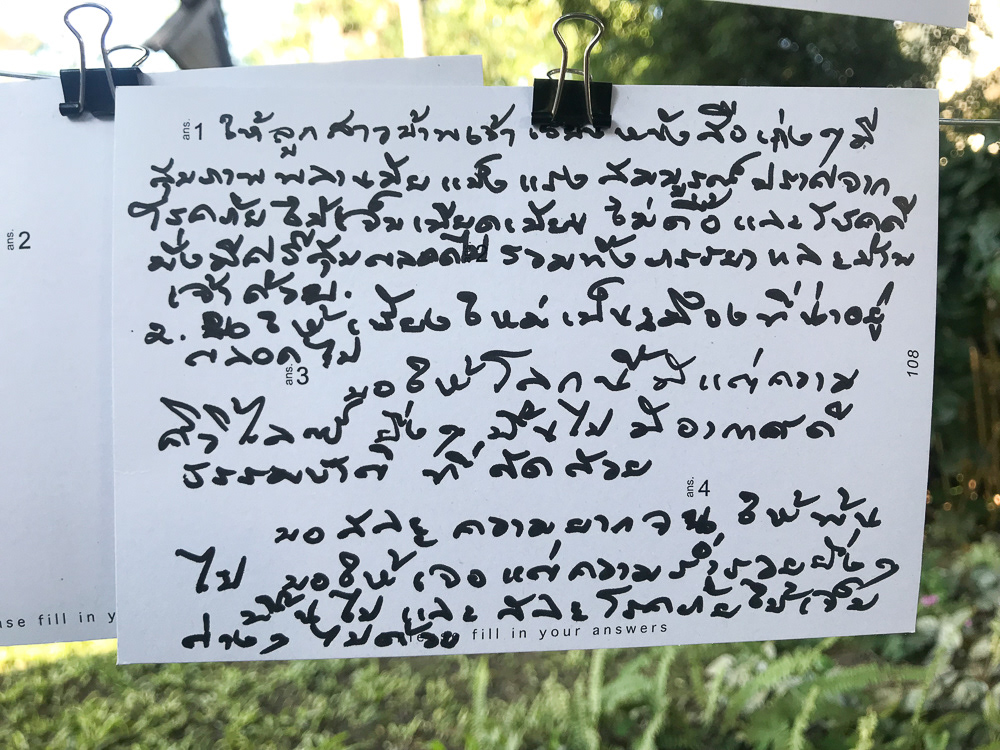 ans. 1 ให้ลูกสาวข้าพเจ้า เรียนหนังสือเก่งๆ มี
สุขภาพพลานมัย แข็งแรง สมบูรณ์ ปราศจาก
โรคภัยไข้เจ็บ เบียดเบียน ไม่ดื้อ และโชคดี
มั่งมีศรีสุขตลอดไป รวมทั้ง ภรรยา และข้าพ
เจ้าด้วย.
ans. 2
2. ขอให้ เมืองไหล่ เป็นเมือง ที่น่าอยู่
ตลอดไป
ans. 3
ขอให้โลกนี้ มีแต่ความ
ยิ่งๆ ขึ้นไป มีอากาศดี
ธรรมชาติ ที่สดสวย
ans. 4
ขอสละ ความยากจน ให้พ้น
ไป ขอให้เจอ แต่ความร่ำรวยยิ่งๆ
ขึ้นไป และ สละโรคภัยไข้เจ็บ
ต่างๆ ไปด้วย
fill in your answers
108
ans. 2
se fill in y